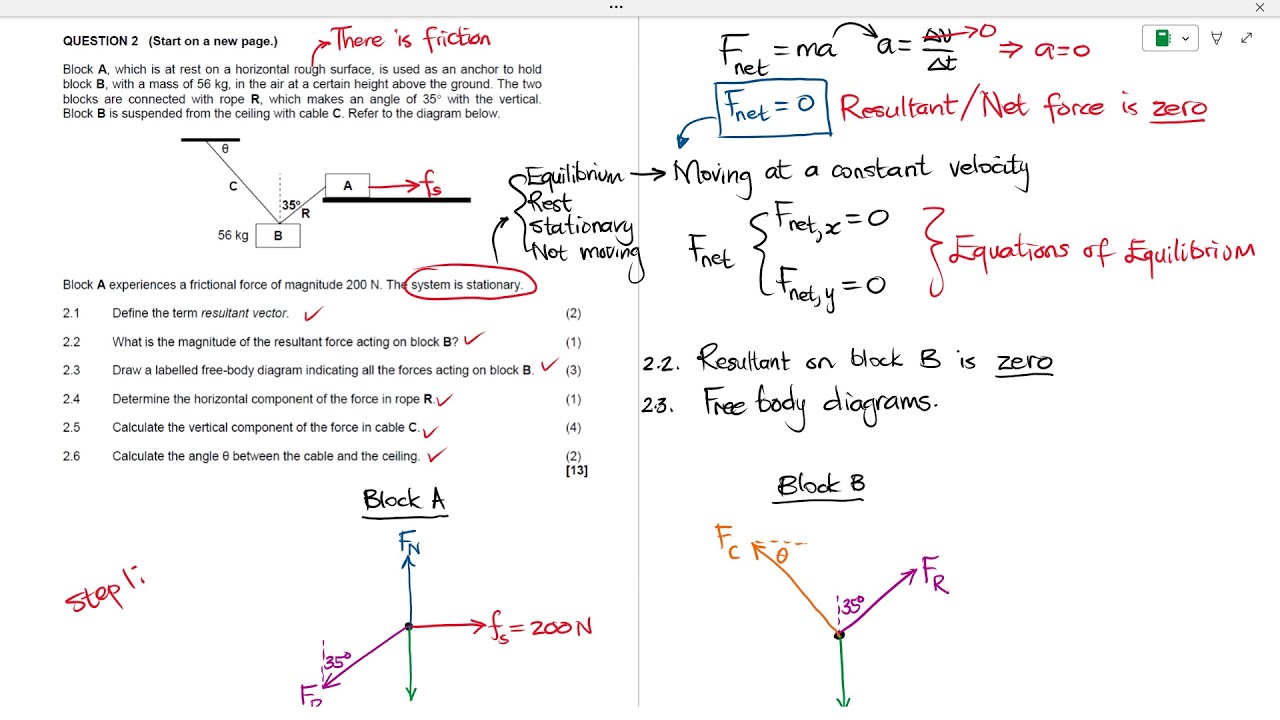 QUESTION 2 (Start on a new page.)
There is friction
Block A, which is at rest on a horizontal rough surface, is used as an anchor to hold
block B, with a mass of 56 kg, in the air at a certain height above the ground. The two
blocks are connected with rope R, which makes an angle of 35° with the vertical.
Block B is suspended from the ceiling with cable C. Refer to the diagram below.
θ
C
A
fs
35°
R
56 kg
B
Equilibrium
Rest
stationary
Not moving
Block A experiences a frictional force of magnitude 200 N. The system is stationary.
2.1 Define the term resultant vector. (2)
2.2 What is the magnitude of the resultant force acting on block B? (1)
2.3 Draw a labelled free-body diagram indicating all the forces acting on block B. (3)
2.4 Determine the horizontal component of the force in rope R. (1)
2.5 Calculate the vertical component of the force in cable C. (4)
2.6 Calculate the angle θ between the cable and the ceiling. (2)
[13]
Block A
FN
step 1:
fs = 200N
35°
Fnet = ma a = Δv/Δt →0 ⇒ a=0
Fnet = 0 Resultant/Net force is zero
Moving at a constant velocity
Fnet
Fnet,x = 0
Fnet,y = 0
Equations of Equilibrium
2.2. Resultant on block B is zero
2.3. Free body diagrams.
Block B
FC
θ
FR
35°